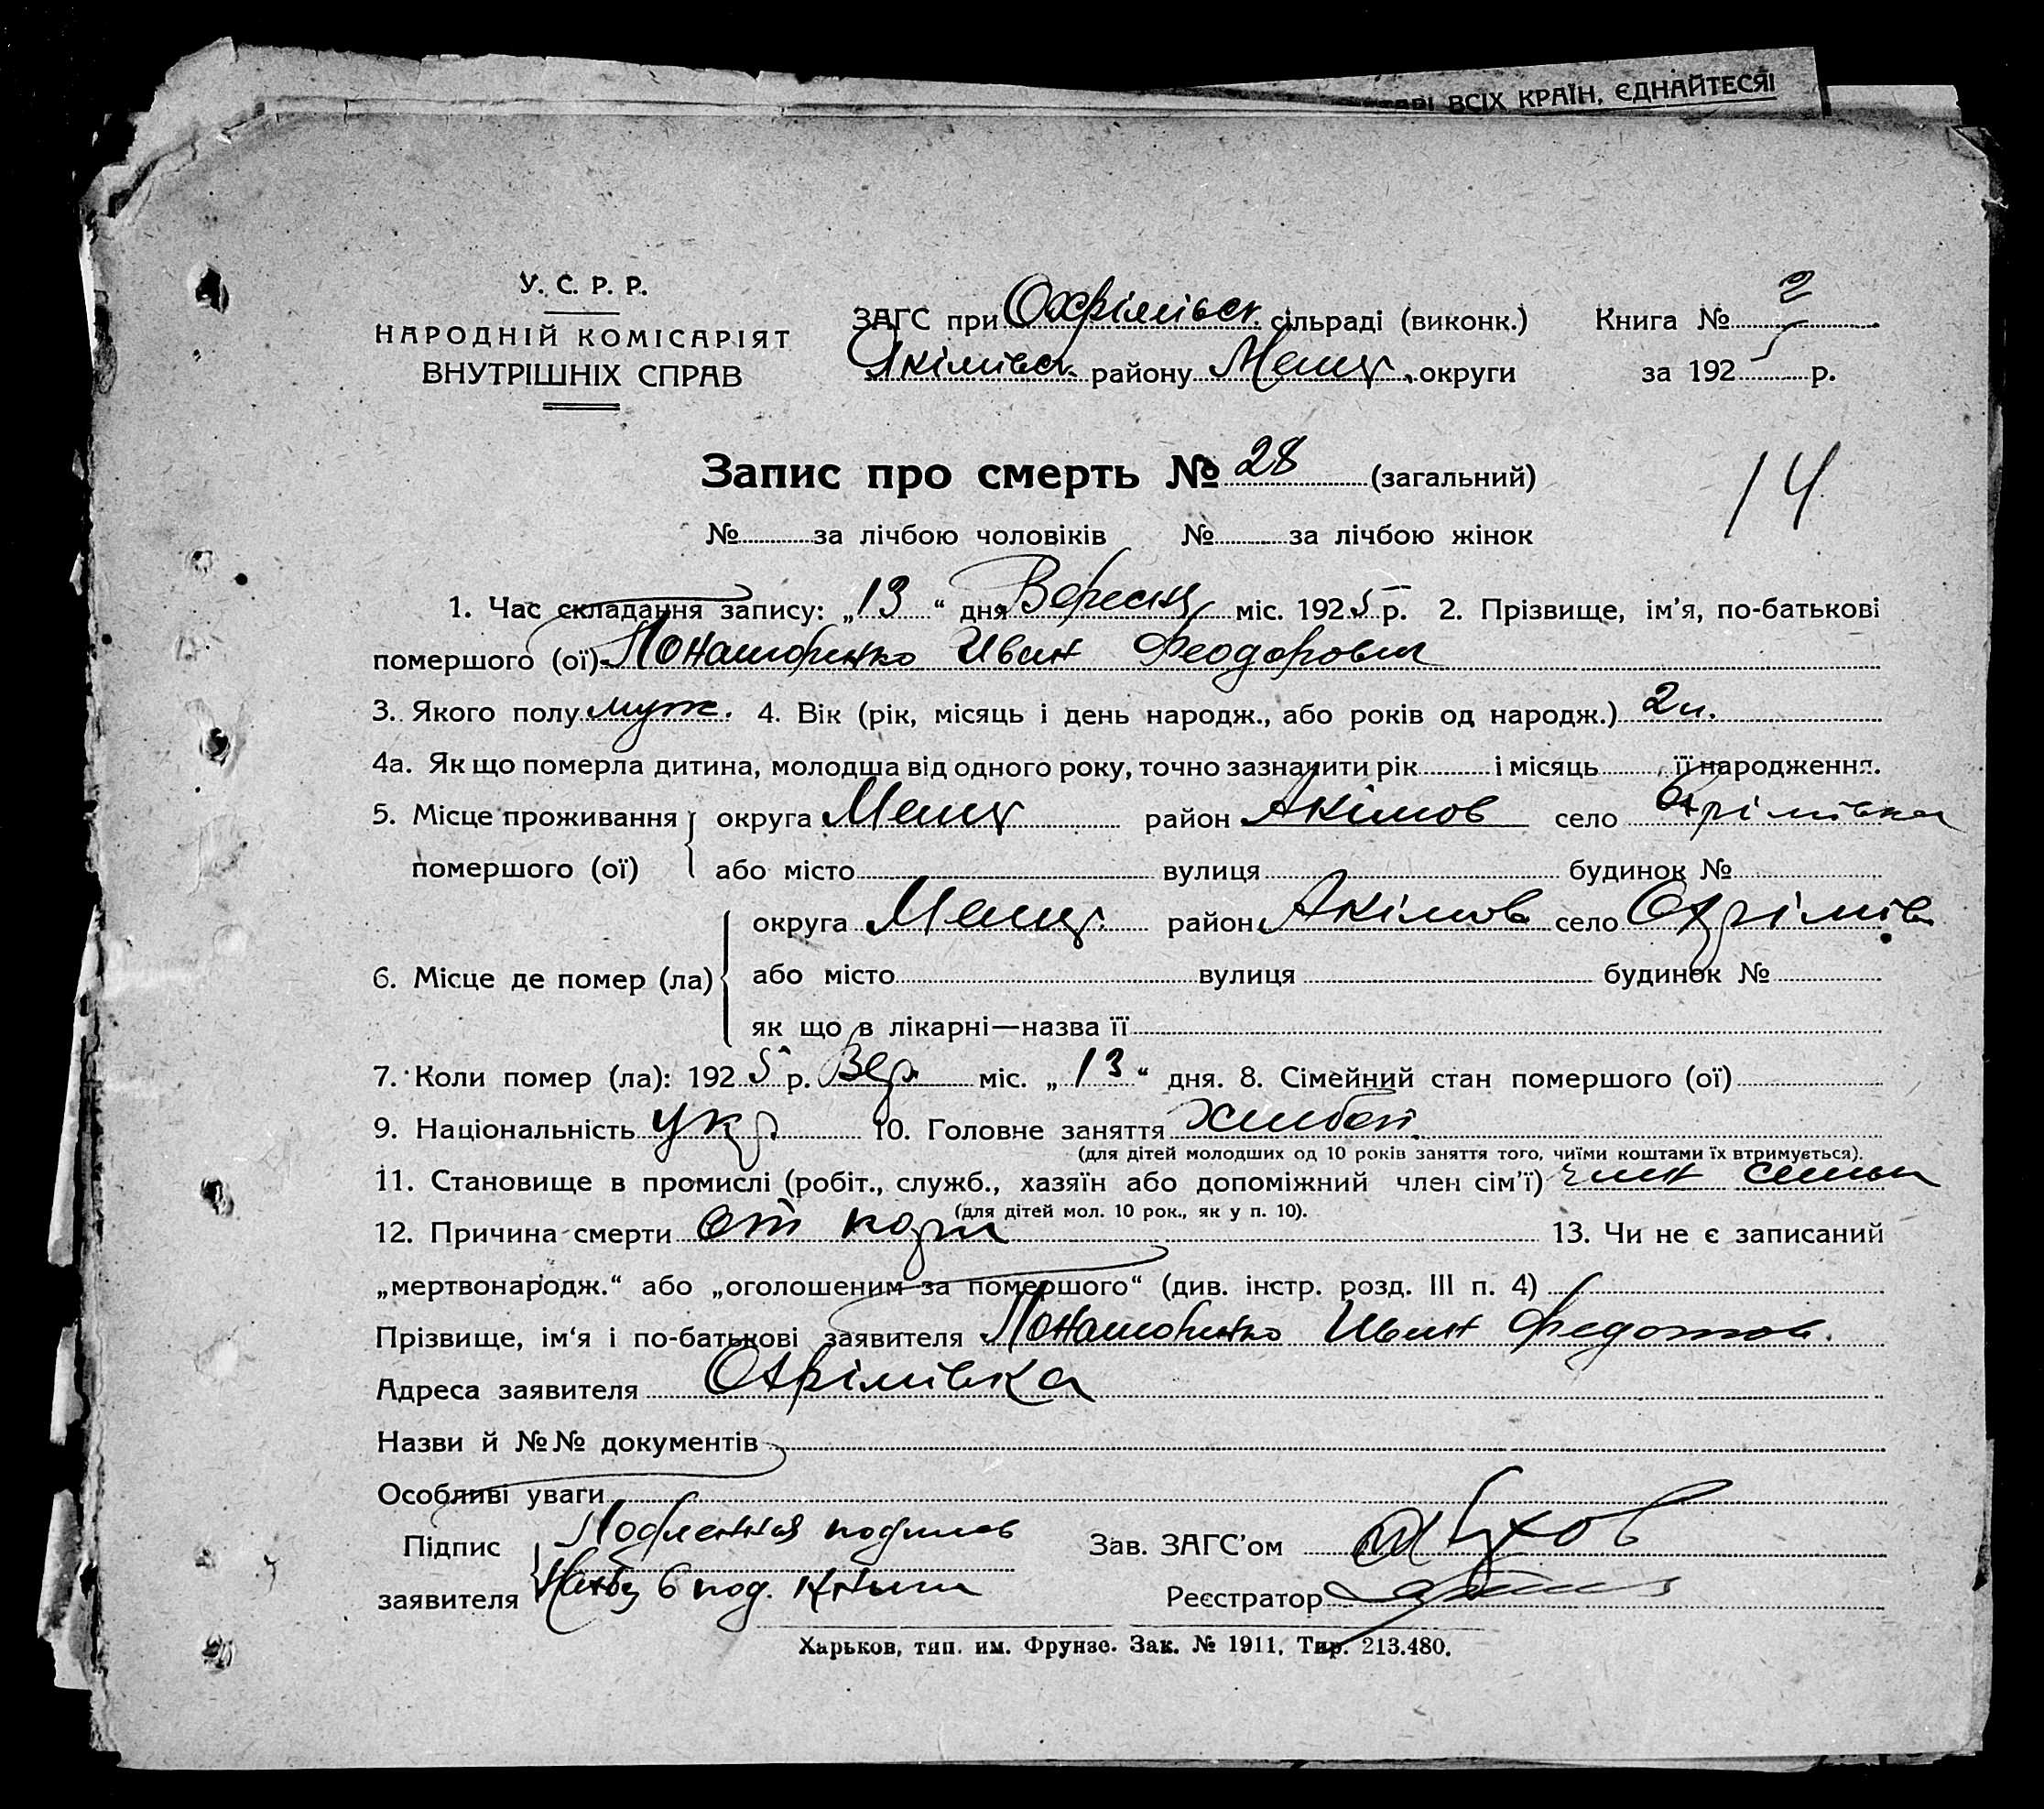 ВСІХ КРАЇН, ЄДНАЙТЕСЯ!
У. С. Р. Р.
НАРОДНІЙ КОМІСАРІЯТ
ВНУТРІШНІХ СПРАВ
ЗАГС при Охрімівск. сільраді (виконк.) Книга № 2
Якімівск. району Меліт. округи за 1925 р.
Запис про смерть № 28 (загальний)
14
№ за лічбою чоловіків № за лічбою жінок
1. Час складання запису: „13“ дня Вересня міс. 1925 р. 2. Прізвище, ім'я, по-батькові
помершого (ої) Иван Феодорович
3. Якого полу муж. 4. Вік (рік, місяць і день народж., або років од народж.) 2
4а. Як що померла дитина, молодша від одного року, точно зазначити рік і місяць її народження.
5. Місце проживання округа Меліт район Акімов село Охрімівка
помершого (ої) або місто вулиця будинок №
округа Меліт. район Акімов село Охрімів
6. Місце де помер (ла) або місто вулиця будинок №
як що в лікарні—назва її
7. Коли помер (ла): 1925 р. Вер. міс. „13“ дня. 8. Сімейний стан помершого (ої)
9. Національність укр. 10. Головне заняття хлібоп.
(для дітей молодших од 10 років заняття того, чиїми коштами їх втримується).
11. Становище в промислі (робіт., служб., хазяїн або допоміжний член сім'ї) член семьи
(для дітей мол. 10 рок., як у п. 10).
12. Причина смерти от кори 13. Чи не є записаний
„мертвонародж.“ або „оголошеним за помершого“ (див. інстр. розд. III п. 4)
Прізвище, ім'я і по-батькові заявителя Иван Федотов.
Адреса заявителя Охрімівка
Назви й №№ документів
Особливі уваги
Підпис подпись
заявителя под.
Зав. ЗАГС'ом
Реєстратор
Харьков, тип. им. Фрунзе. Зак. № 1911. Тир. 213.480.